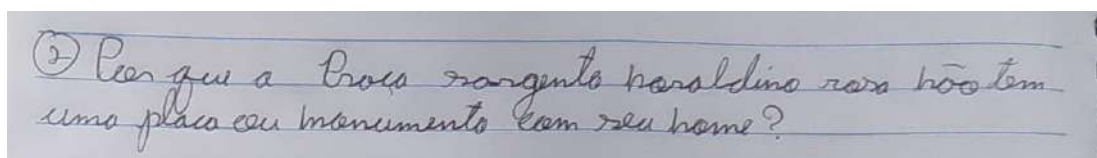 ② Por que a Praça sargento haroldino rosa não tem
uma placa ou monumento com seu nome?